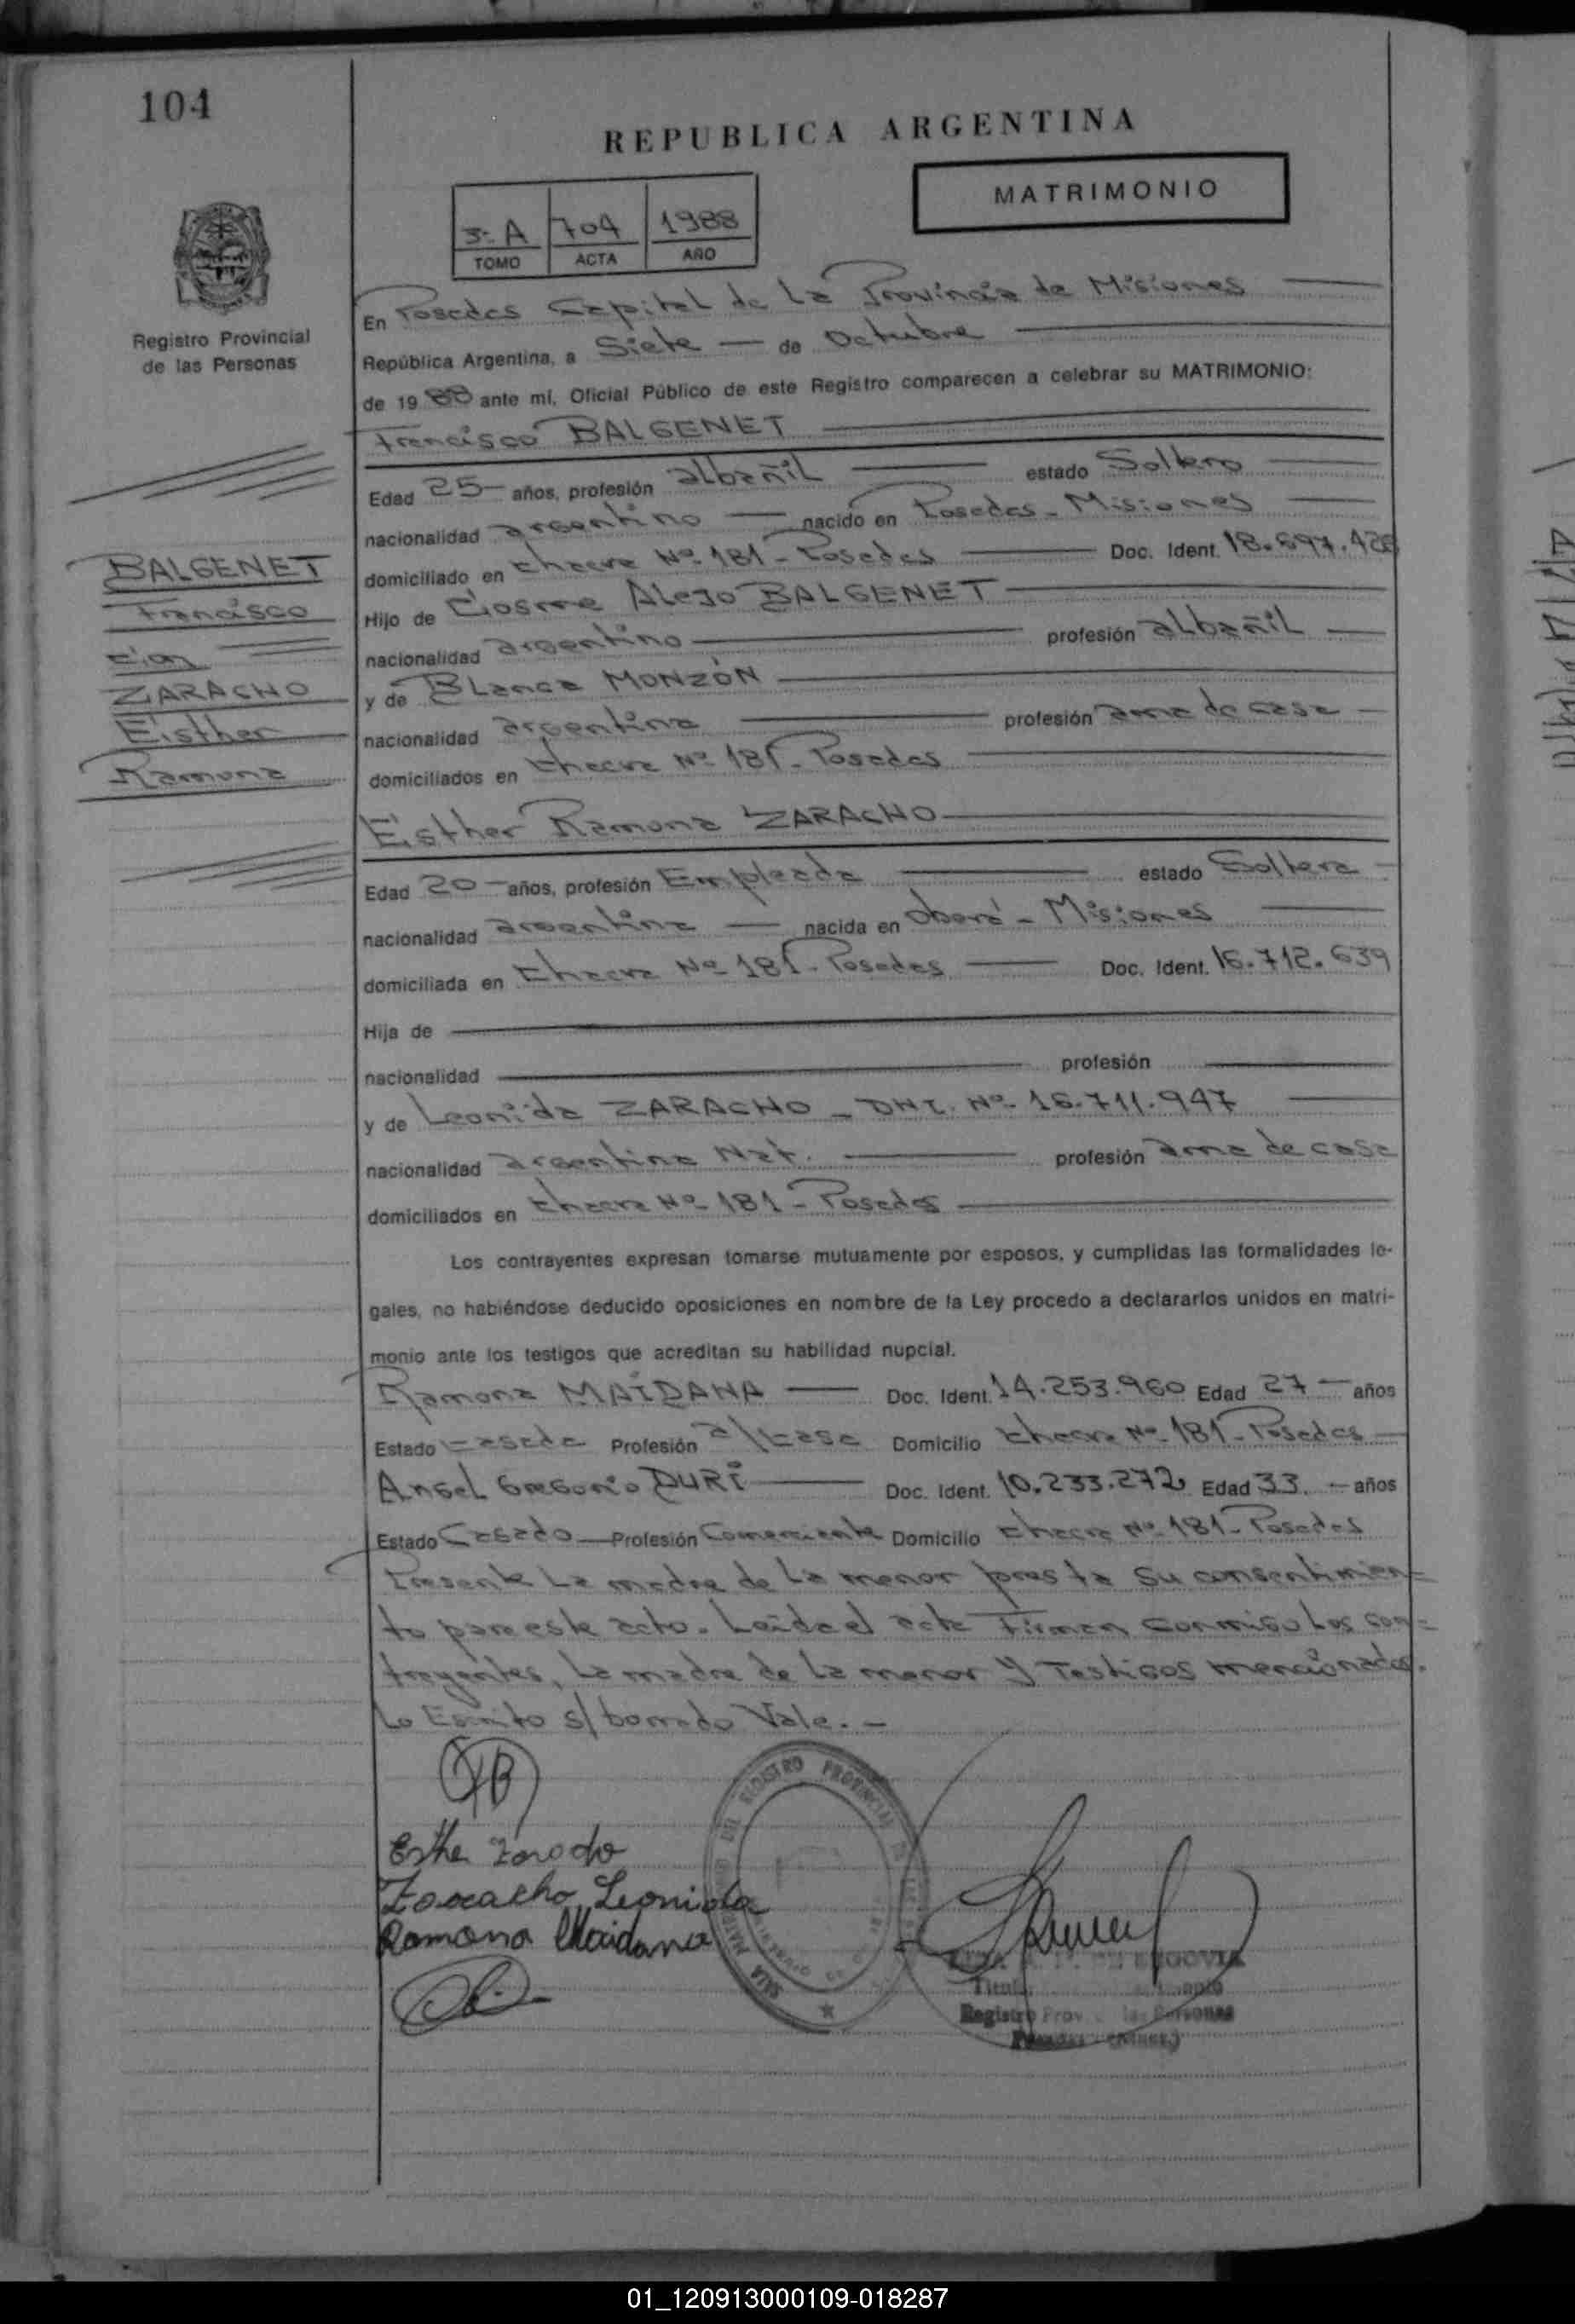 104
REPUBLICA ARGENTINA
MATRIMONIO
3º A 704 1988
TOMO ACTA AÑO
Registro Provincial
de las Personas
En Posadas Capital de La Provincia de Misiones
República Argentina, a Siete de Octubre
de 19 88 ante mí, Oficial Público de este Registro comparecen a celebrar su MATRIMONIO:
Francisco BALGENET
Edad 25 años, profesión albañil estado Soltero
nacionalidad argentino nacido en Posadas - Misiones
domiciliado en Chacra Nº 181 - Posadas Doc. Ident.
BALGENET
Francisco
con
ZARACHO
Esther
Ramona
Hijo de Cosme Alejo BALGENET
nacionalidad argentino profesión albañil
y de Blanca MONZÓN
nacionalidad argentina profesión ama de casa
domiciliados en Chacra Nº 181 - Posadas
Esther Ramona ZARACHO
Edad 20 años, profesión Empleada estado Soltera
nacionalidad argentina nacida en Oberá - Misiones
domiciliada en Chacra Nº 181 - Posadas Doc. Ident. 16.712.639
Hija de
nacionalidad profesión
y de Leonida ZARACHO - DNI. Nº 16.711.947
nacionalidad argentina Nat. profesión ama de casa
domiciliados en Chacra Nº 181 - Posadas
Los contrayentes expresan tomarse mutuamente por esposos, y cumplidas las formalidades le-
gales, no habiéndose deducido oposiciones en nombre de la Ley procedo a declararlos unidos en matri-
monio ante los testigos que acreditan su habilidad nupcial.
Ramona MAIDANA Doc. Ident. 14.253.960 Edad 27 años
Estado Casada Profesión a/casa Domicilio Chacra Nº 181 - Posadas
Angel Gregorio DURI Doc. Ident. 10.233.272 Edad 33. años
Estado Casado Profesión Comerciante Domicilio Chacra Nº 181 - Posadas
Presente La madre de La menor presta su consentimien=
to para este acto. Leida el acta Firman conmigo Los con=
trayentes, La madre de La menor y Testigos mencionados.
Lo Escrito s/ borrado Vale. -
Zaracho Leonida
Ramona Maidana
Registro Prov. las Personas
01_120913000109-018287